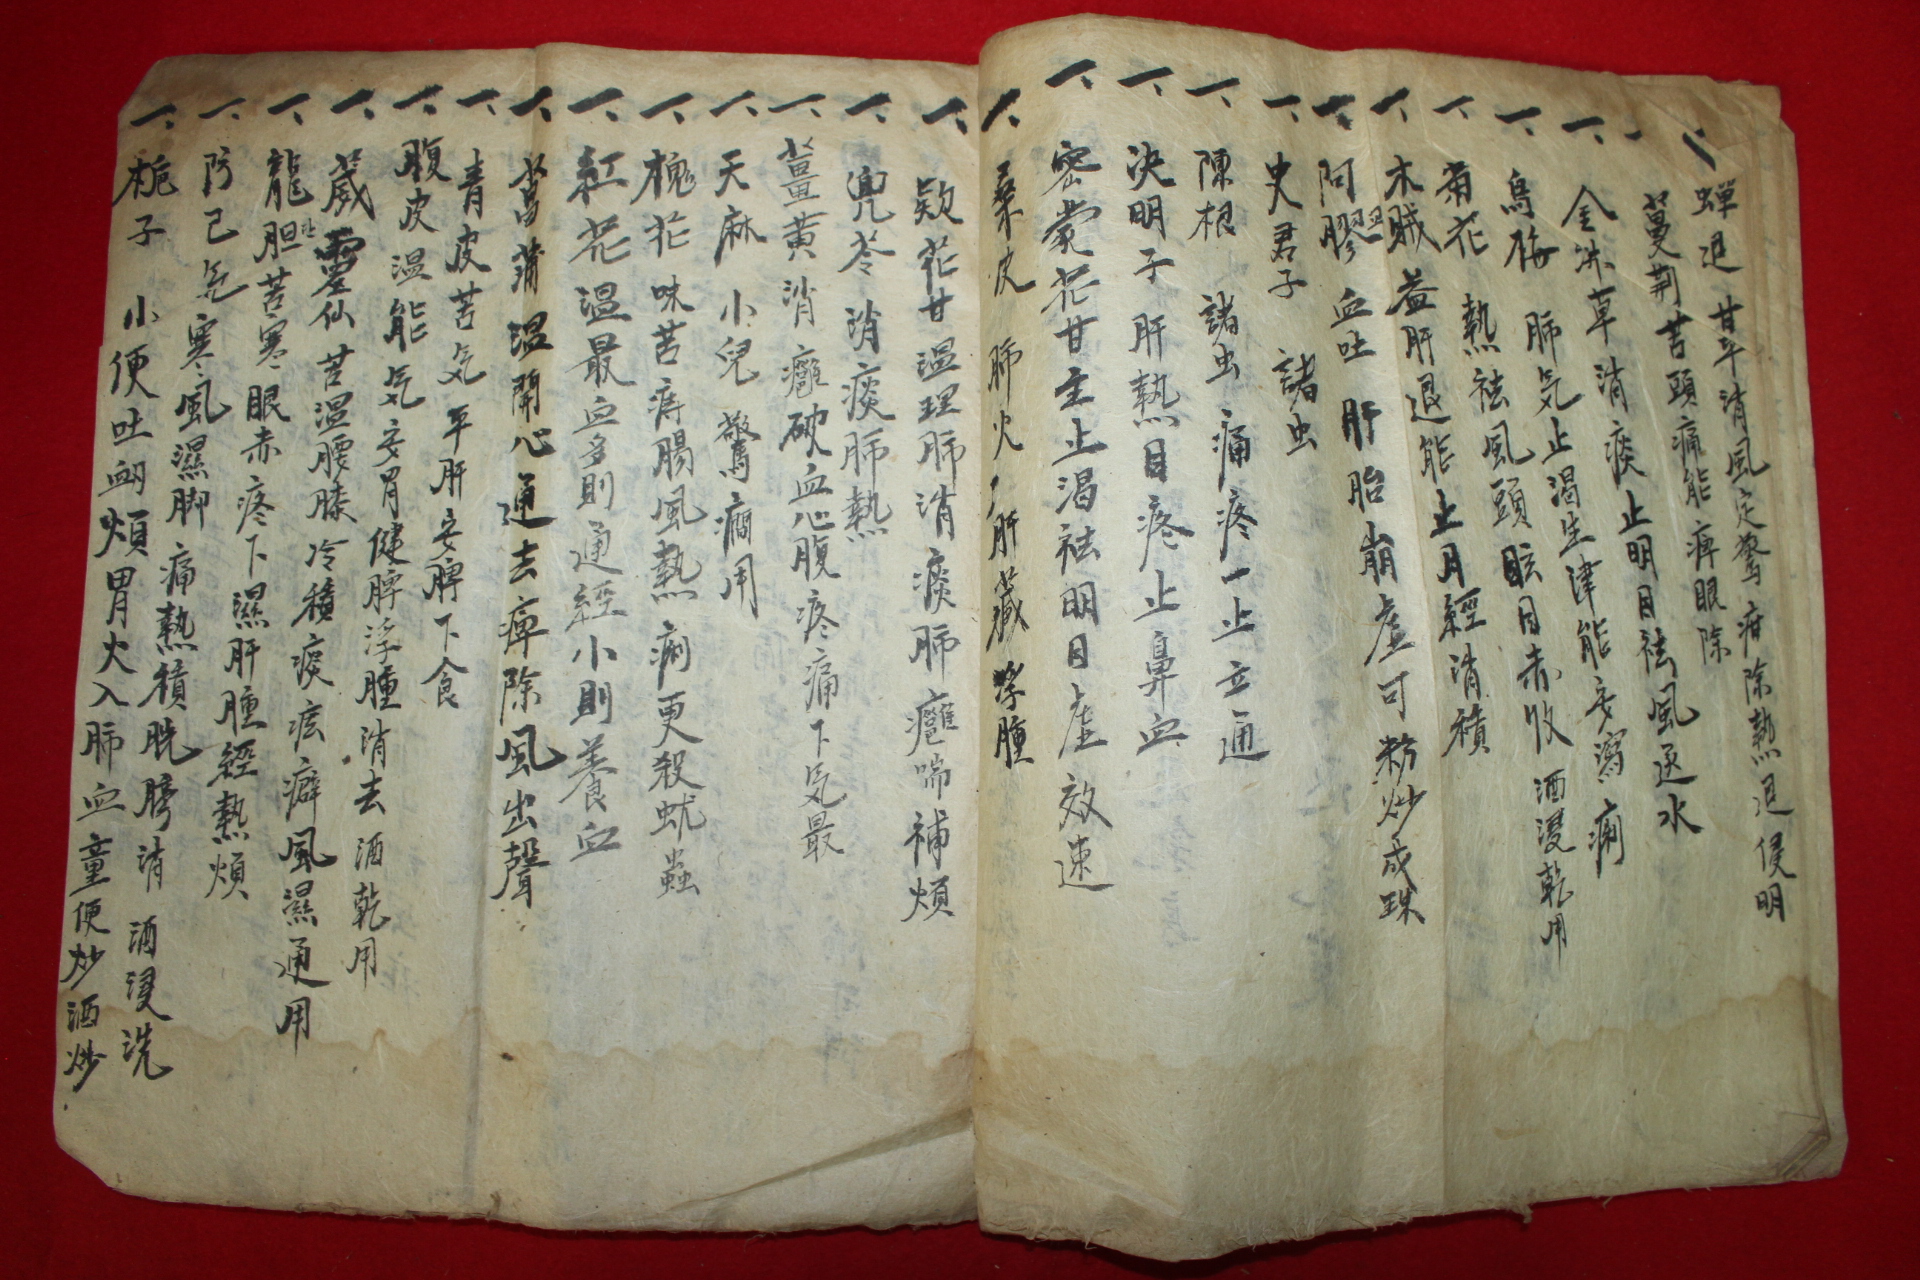 一、蟬退 甘平消風定驚疳除熱退侵明
一、蔓荊苦頭痛能痺眼除
金沸草消痰止明目祛風逐水
一、烏梅 肺気止渴生津能安瀉痢
一、菊花 熱祛風頭眩目赤收 酒浸乾用
一、木賊益肝退能止月經消積
一、阿膠 血吐 肝胎崩虛可粉炒成珠
一、史君子 諸虫
一、陳根 諸虫 痛疼一止立通
一、決明子肝熱目疼止鼻血
一、密蒙花甘主止渴祛明目虛效速
一、桑皮 肺火 肝藏浮腫
一、款花甘温理肺消痰肺癰喘補煩
一、兜苓消痰肺熱
一、薑黃消癰破血心腹疼痛下気最
一、天麻 小兒驚癎用
一、槐花味苦痔腸風熱痢更殺蚘蟲
一、紅花温最血多則通經小則養血
一、菖蒲温開心通去痺除風出聲
一、青皮苦気平肝安脾下食
一、腹皮温能気安胃健脾浮腫消去酒乾用
一、葳靈仙苦温腰膝冷積痰痃癖風濕通用
一、龍胆苦寒眼赤疼下濕肝腫經熱煩
一、防己気寒風濕脚痛熱積胱膀消 酒浸洗
一、梔子 小便吐衂煩胃火入肺血童便炒酒炒